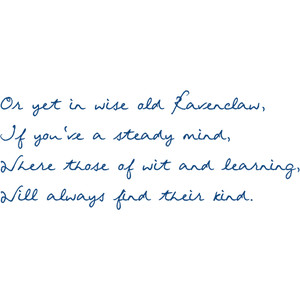 Or yet in wise old Ravenclaw,
If you've a steady mind,
Where those of wit and learning,
Will always find their kind.